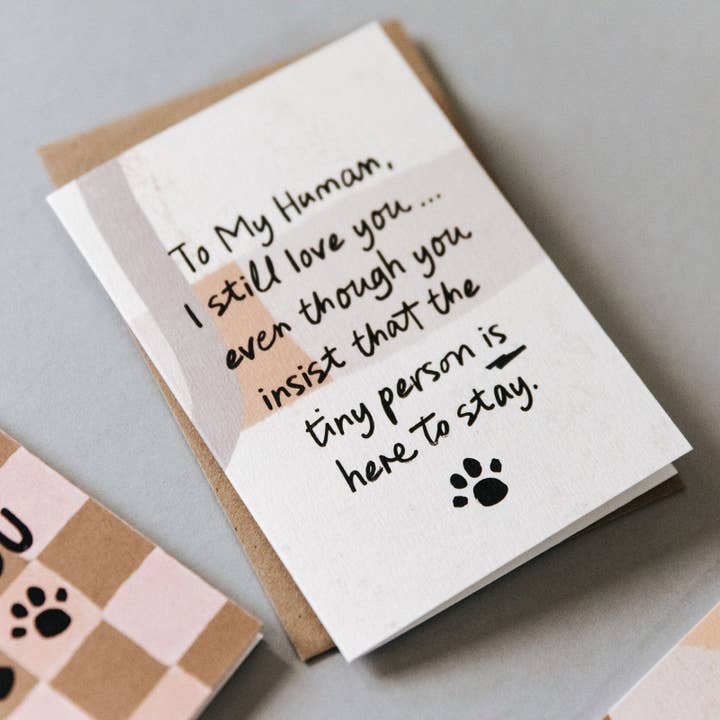 To My Human,
I still love you ...
even though you
insist that the
tiny person is
here to stay.
OU